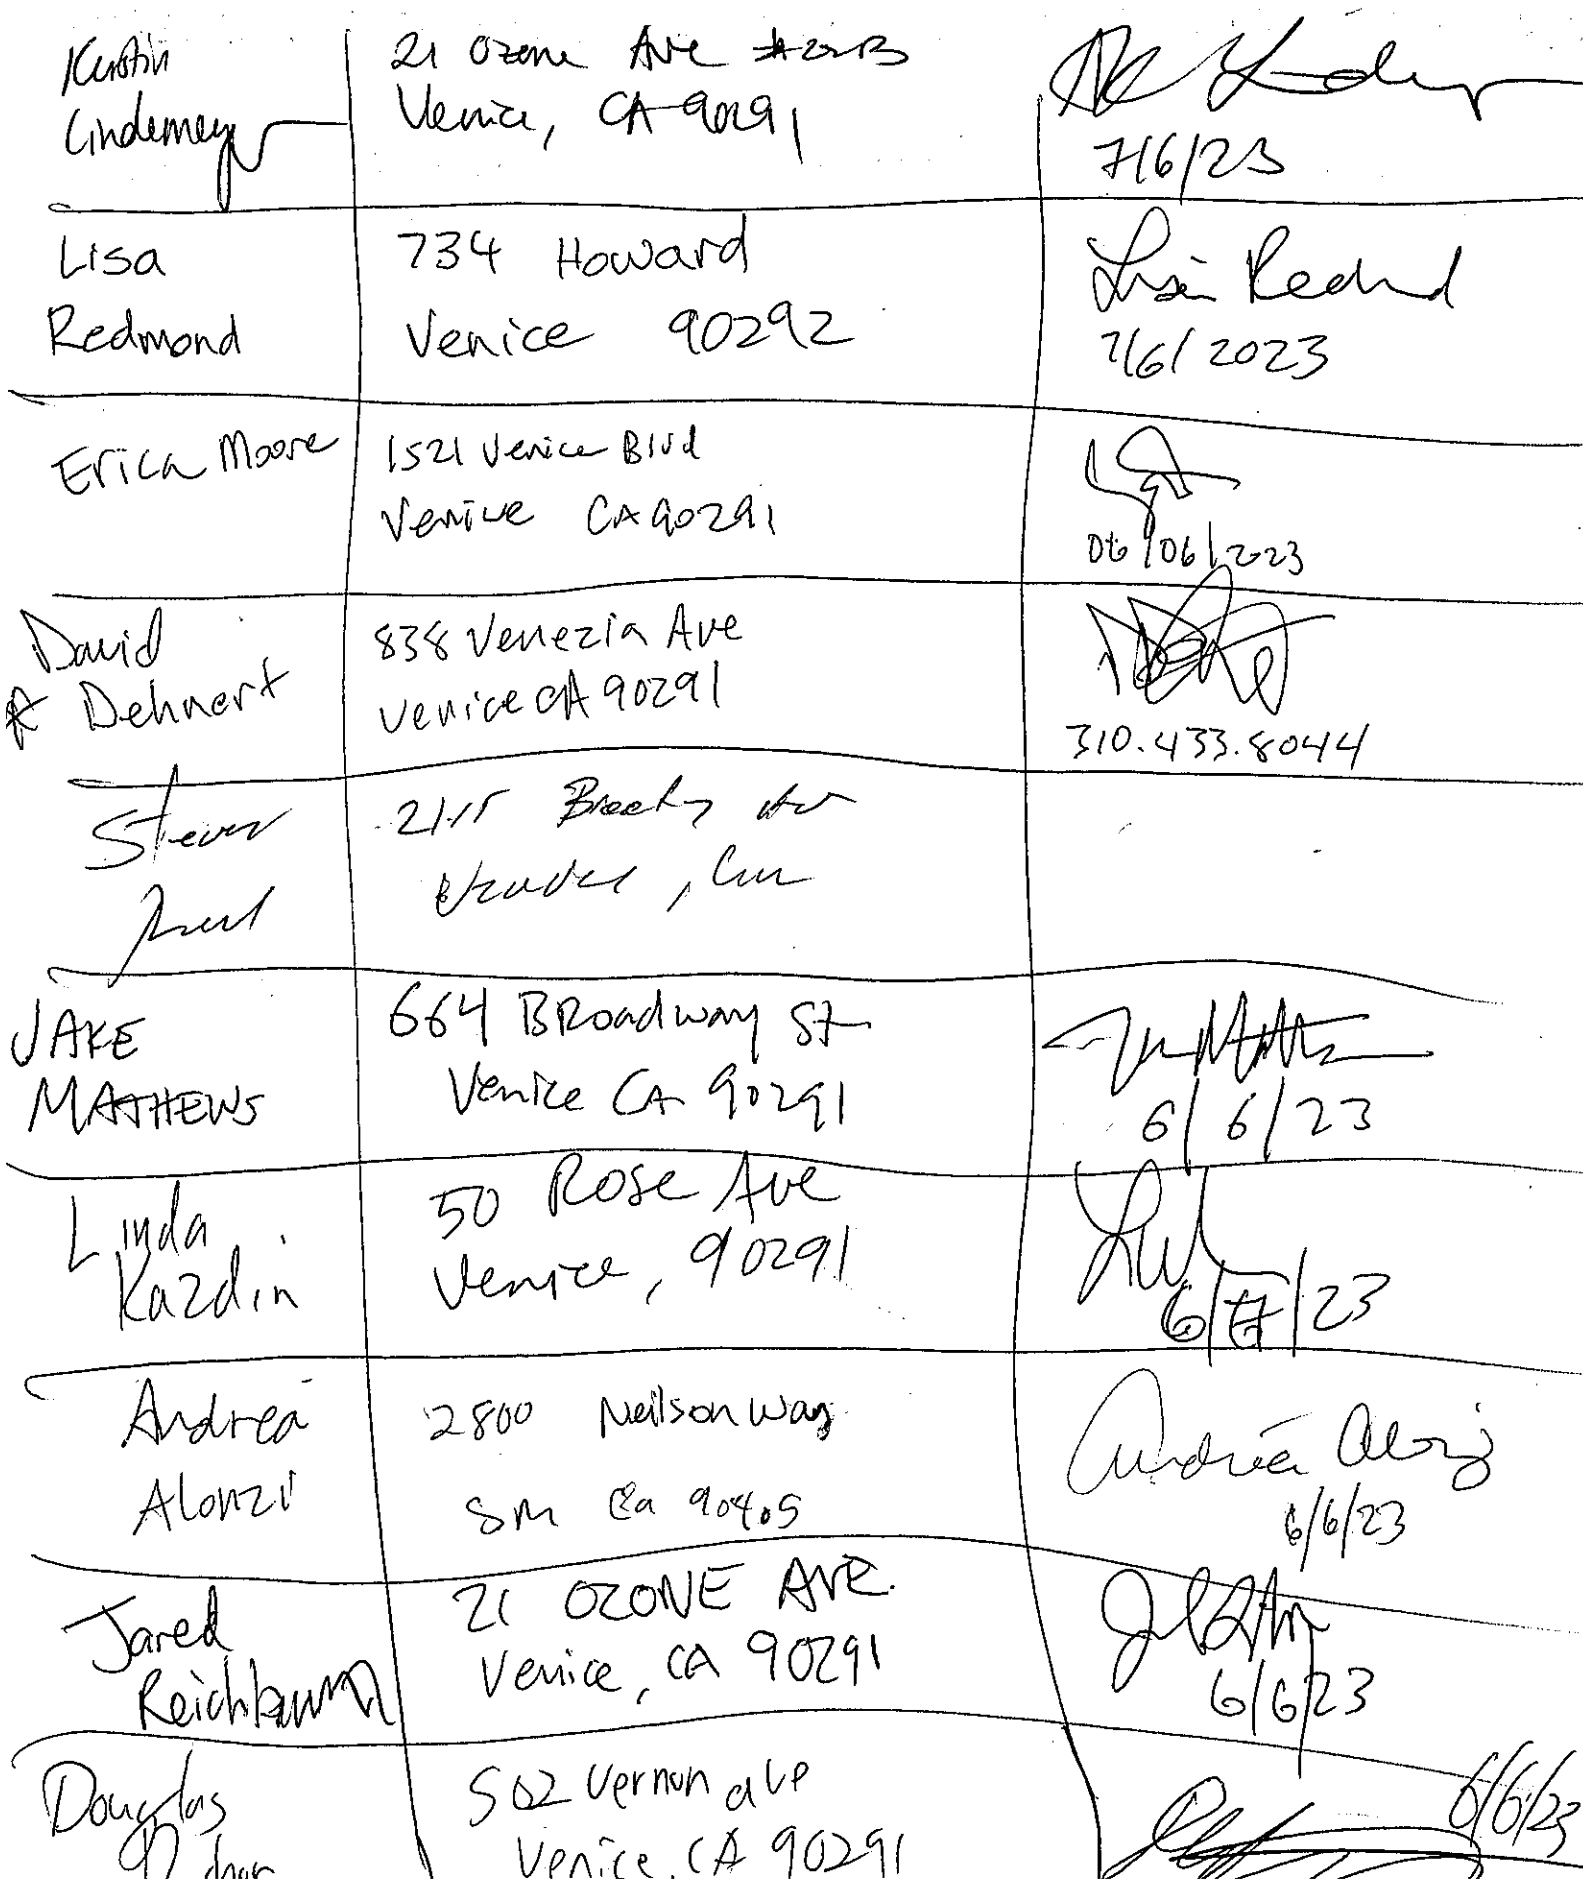 Kerstin
Lindemeyer
21 Ozone Ave
Venice, CA 90291
7/6/23
Lisa
Redmond
734 Howard
Venice 90292
Lisa Redmond
7/6/2023
Erica Moore
1521 Venice Blvd
Venice CA 90291
06/06/2023
David
A Dehnert
838 Venezia Ave
Venice CA 90291
310.433.8044
Steven
JAKE
MATHEWS
664 BRoadway St
Venice CA 90291
6/6/23
Linda
Kazdin
50 Rose Ave
Venice, 90291
6/ /23
Andrea
Alonzi
2800 Neilson Way
SM Ca 90405
Andrea Alonzi
6/6/23
Jared
21 OZONE AVE.
Venice, CA 90291
6/6/23
Douglas
502 Vernon ave
Venice, CA 90291
6/6/23